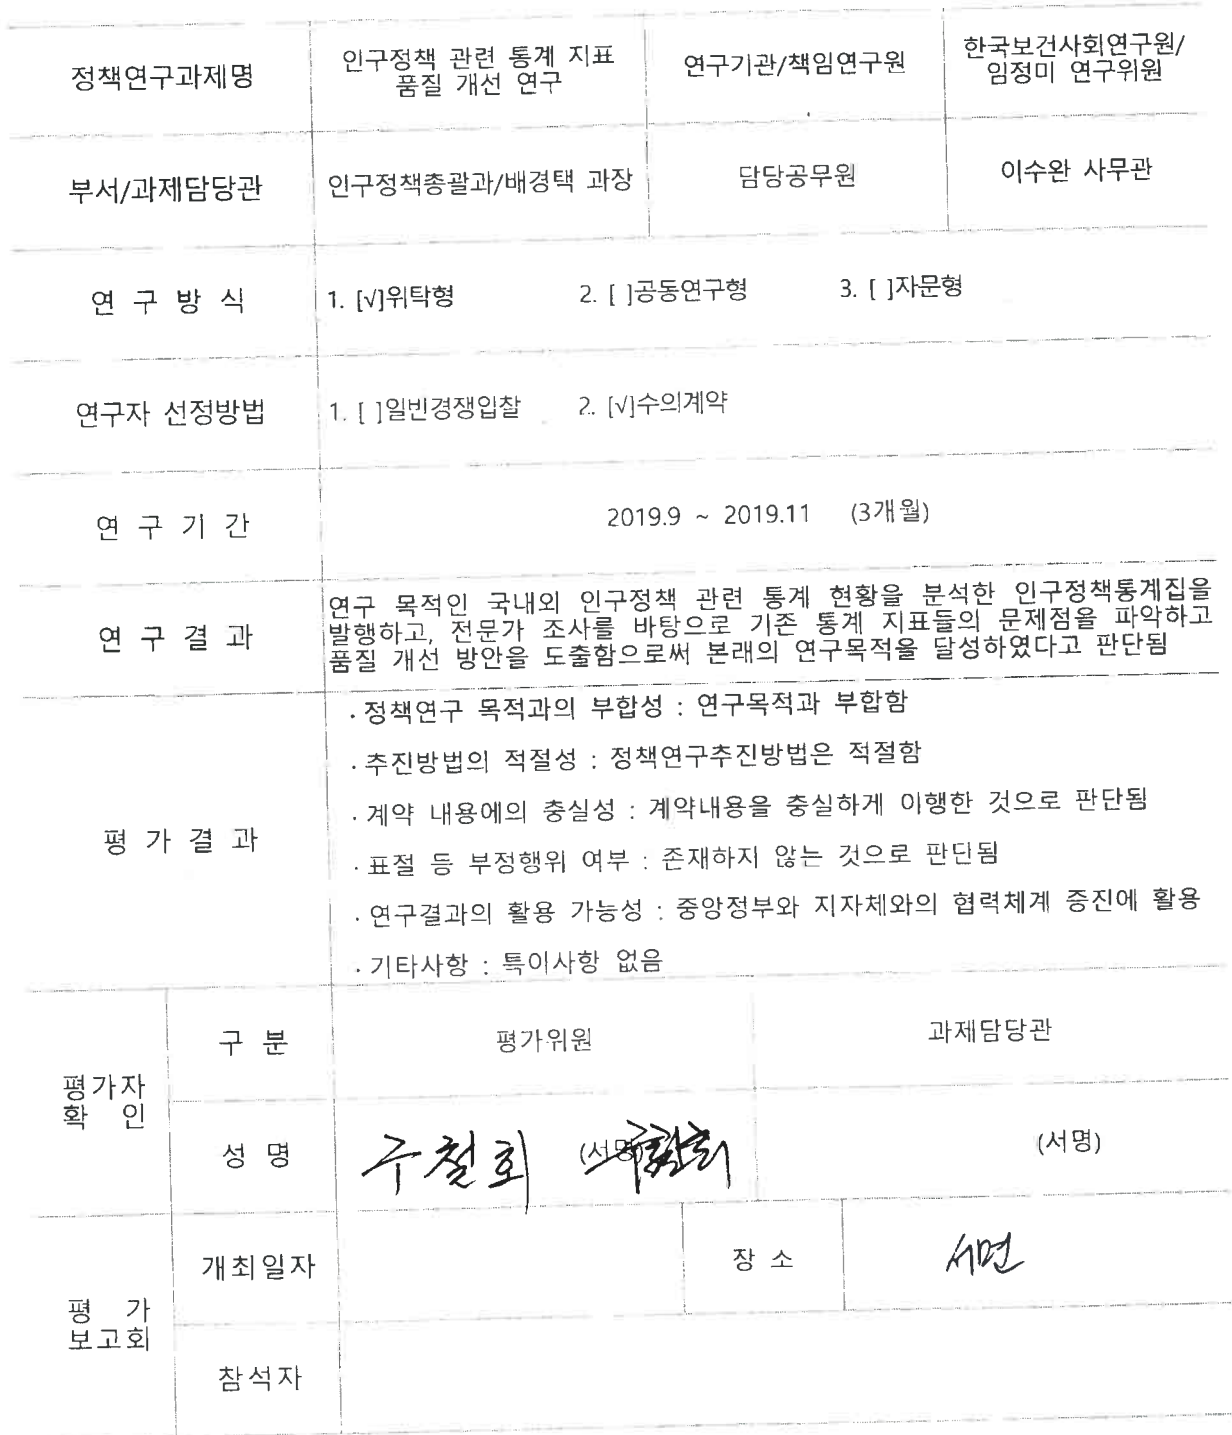 정책연구과제명
인구정책 관련 통계 지표
품질 개선 연구
연구기관/책임연구원
한국보건사회연구원/
임정미 연구위원
부서/과제담당관
인구정책총괄과/배경택 과장
담당공무원
이수완 사무관
연 구 방 식
1. [√]위탁형 2. [ ]공동연구형 3. [ ]자문형
연구자 선정방법
1. [ ]일반경쟁입찰 2. [√]수의계약
연 구 기 간
2019.9 ~ 2019.11 (3개월)
연 구 결 과
연구 목적인 국내외 인구정책 관련 통계 현황을 분석한 인구정책통계집을
발행하고, 전문가 조사를 바탕으로 기존 통계 지표들의 문제점을 파악하고
품질 개선 방안을 도출함으로써 본래의 연구목적을 달성하였다고 판단됨
평 가 결 과
· 정책연구 목적과의 부합성 : 연구목적과 부합함
· 추진방법의 적절성 : 정책연구추진방법은 적절함
· 계약 내용에의 충실성 : 계약내용을 충실하게 이행한 것으로 판단됨
· 표절 등 부정행위 여부 : 존재하지 않는 것으로 판단됨
· 연구결과의 활용 가능성 : 중앙정부와 지자체와의 협력체계 증진에 활용
· 기타사항 : 특이사항 없음
평가자
확 인
구 분
평가위원
과제담당관
성 명
구철회 (서명) 구철회
(서명)
평 가
보고회
개최일자
장 소
서면
참석자